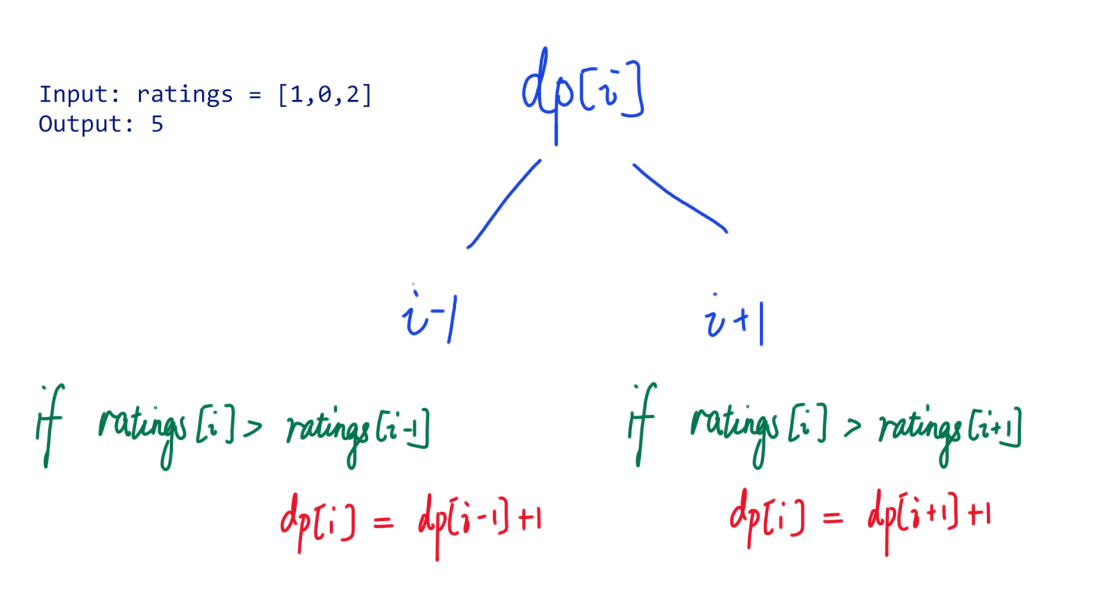 Input: ratings = [1,0,2]
Output: 5
dp[i]
i-1
i+1
if ratings[i] > ratings[i-1]
dp[i] = dp[i-1]+1
if ratings[i] > ratings[i+1]
dp[i] = dp[i+1]+1